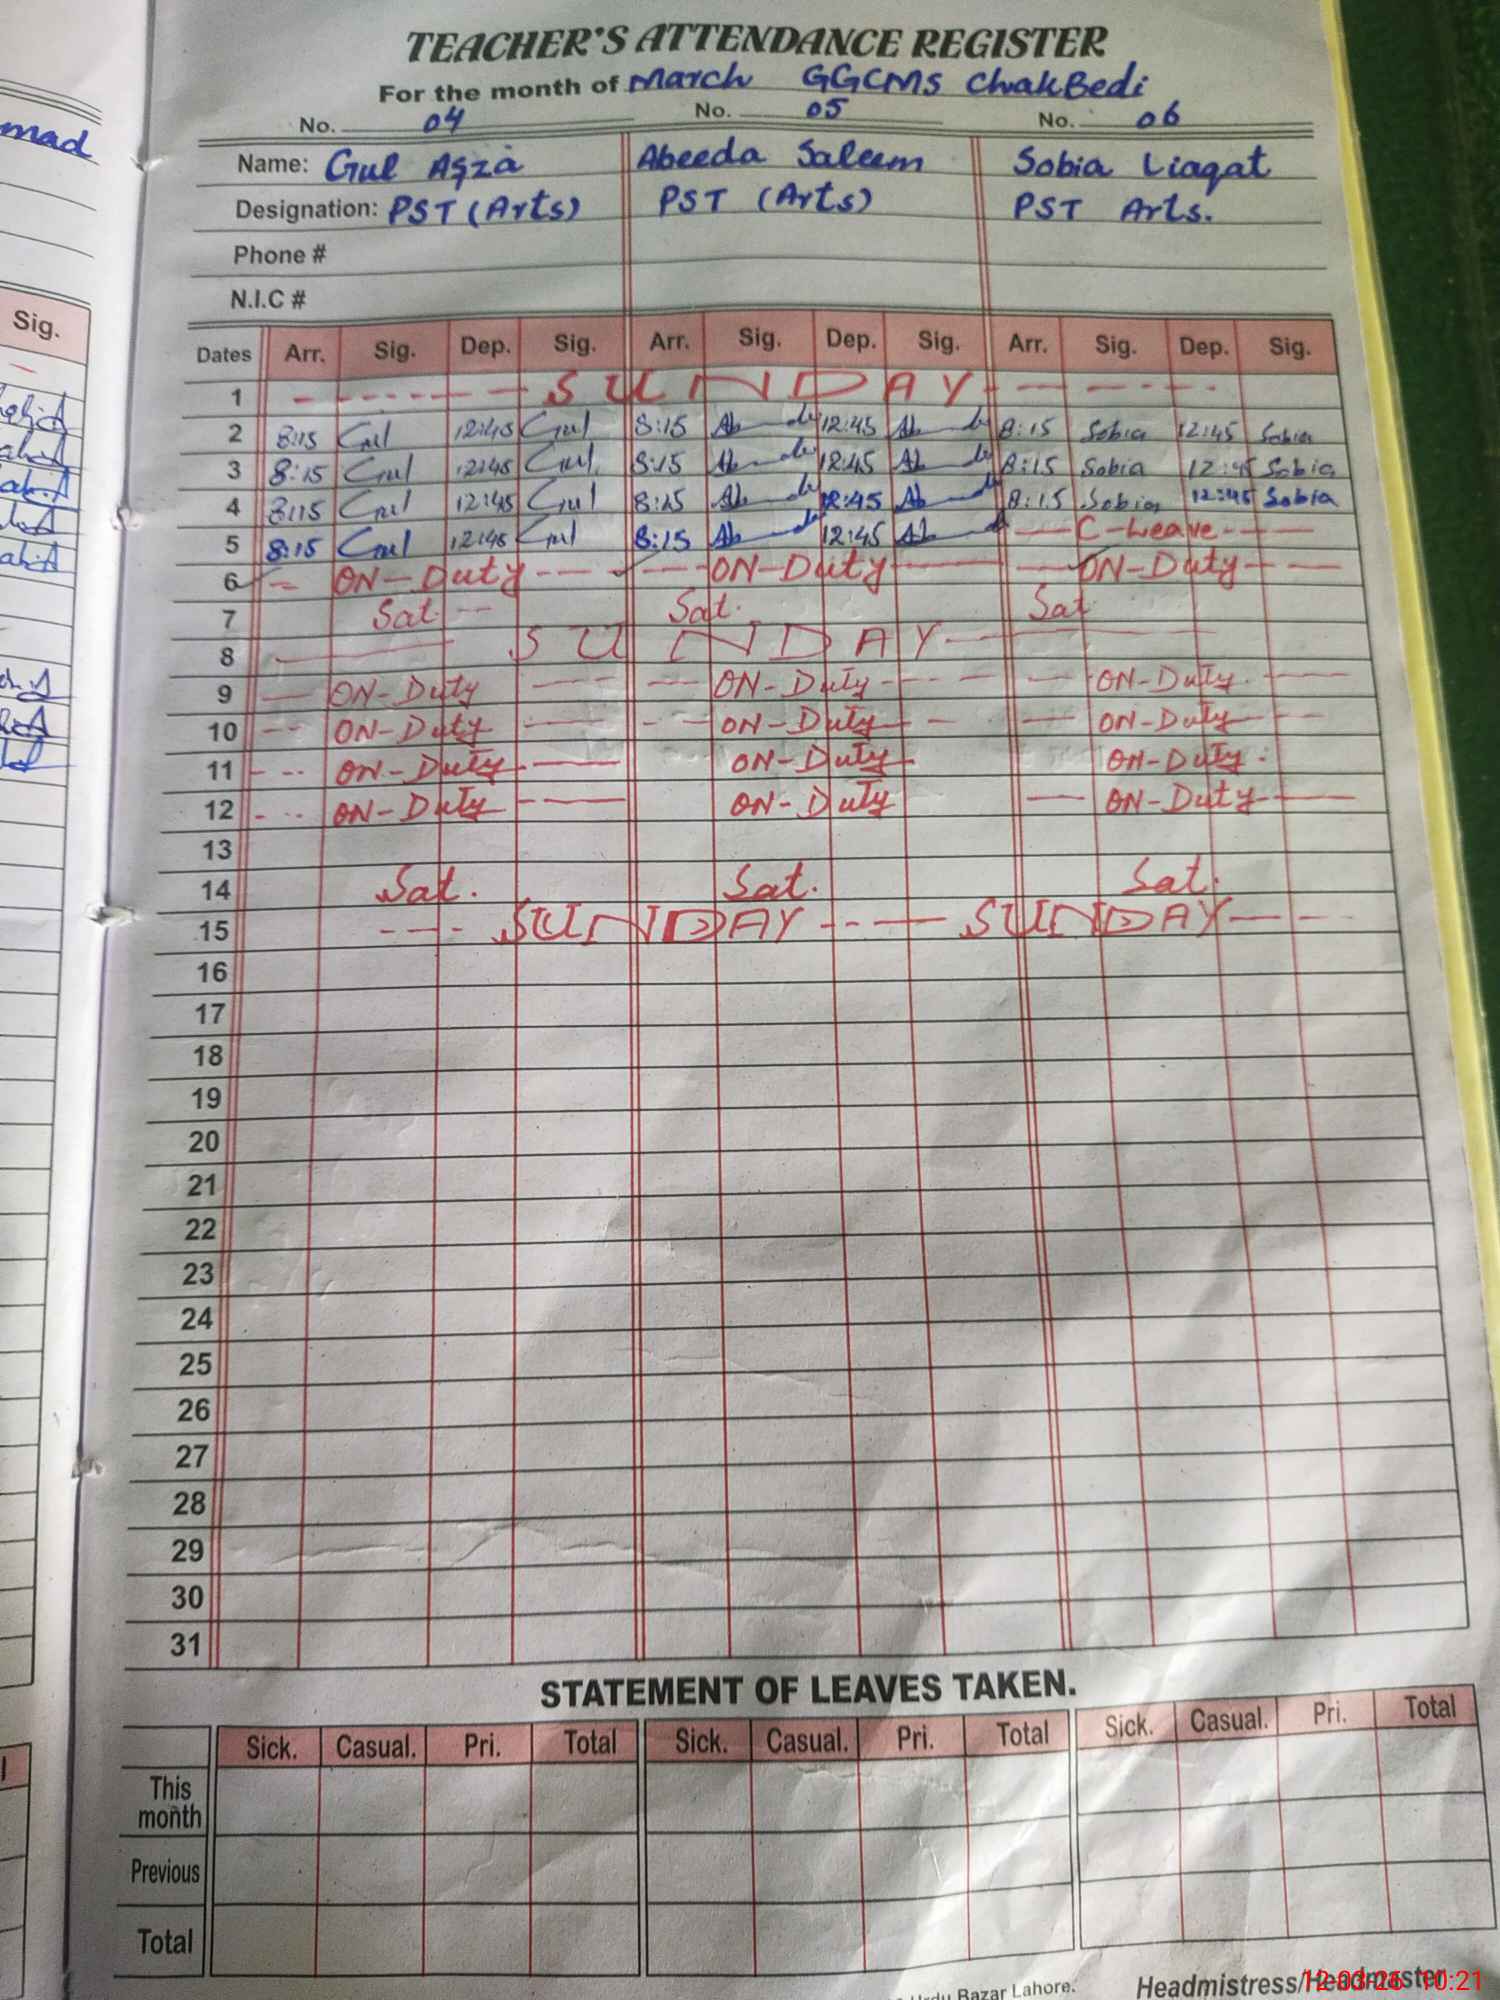 TEACHER'S ATTENDANCE REGISTER
For the month of March GGCMS ChakBedi
No. 04 No. 05 No. 06
mad
Name: Gul Afza Abeeda Saleem Sobia Liaqat
Designation: PST (Arts) PST (Arts) PST Arts.
Phone #
N.I.C #
Sig.
Dates Arr. Sig. Dep. Sig. Arr. Sig. Dep. Sig. Arr. Sig. Dep. Sig.
1 SUNDAY
2 8:15 Gul 12:45 Gul 8:15 12:45 8:15 Sobia 12:45 Sobia
3 8:15 Gul 12:45 Gul 8:15 12:45 8:15 Sobia 12:45 Sobia
4 8:15 Gul 12:45 Gul 8:15 12:45 8:15 Sobia 12:45 Sobia
5 8:15 Gul 12:45 Gul 8:15 12:45 C-Leave
6 ON-Duty ON-Duty ON-Duty
7 Sat. Sat. Sat
8 SUNDAY
9 ON-Duty ON-Duty ON-Duty
10 ON-Duty ON-Duty ON-Duty
11 ON-Duty ON-Duty ON-Duty
12 ON-Duty ON-Duty ON-Duty
13
14 Sat. Sat. Sat.
15 SUNDAY SUNDAY
16
17
18
19
20
21
22
23
24
25
26
27
28
29
30
31
STATEMENT OF LEAVES TAKEN.
Sick. Casual. Pri. Total Sick. Casual. Pri. Total Sick. Casual. Pri. Total
This month
Previous
Total
Bazar Lahore. Headmistress/Headmaster
12-03-26 10:21